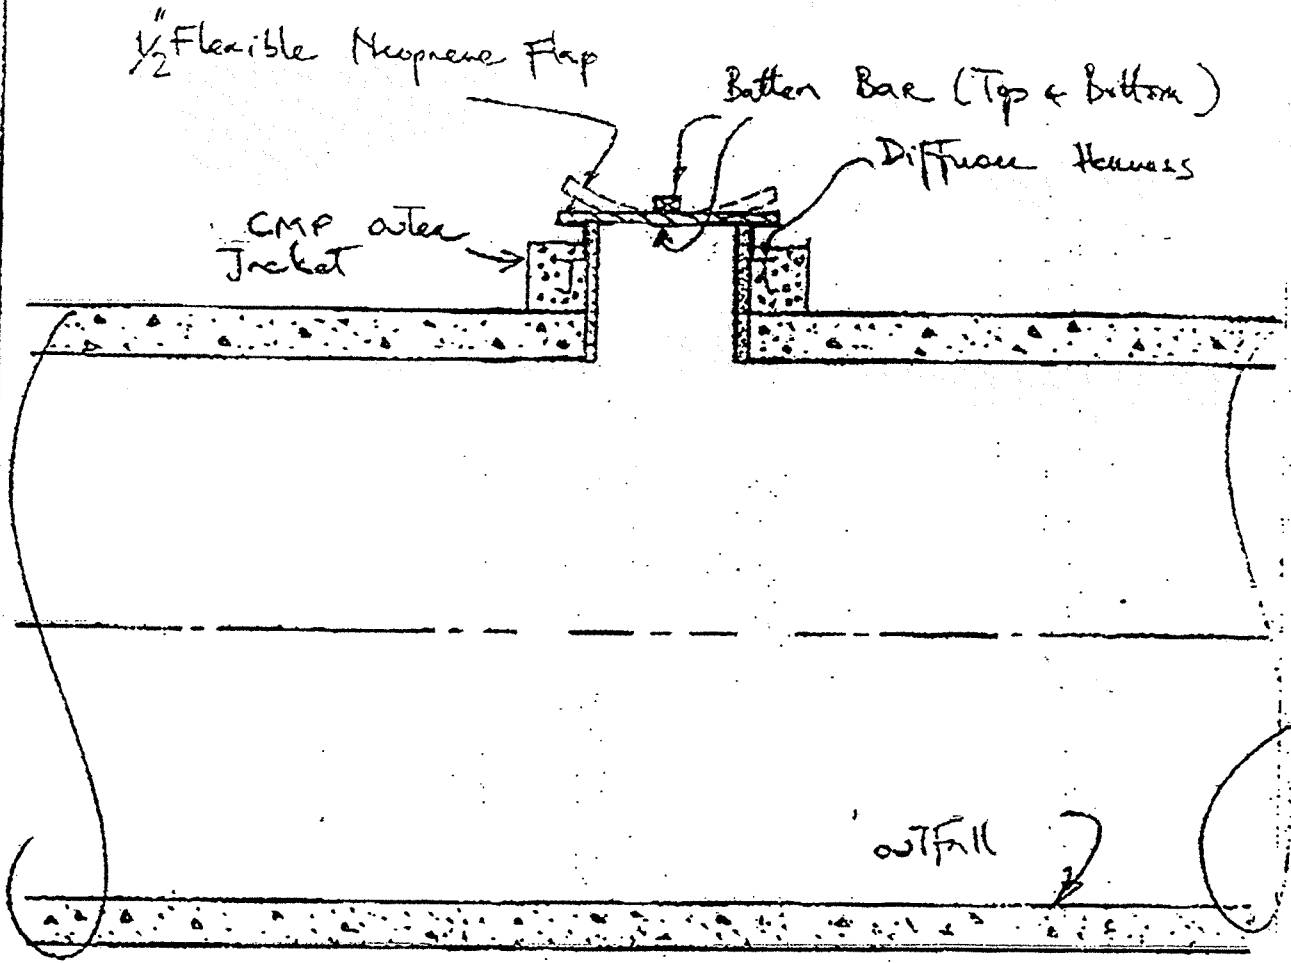 1/2" Flexible Neoprene Flap
Batten Bar (Top & Bottom)
Diffuser Harness
CMP outer
Jacket
outfall